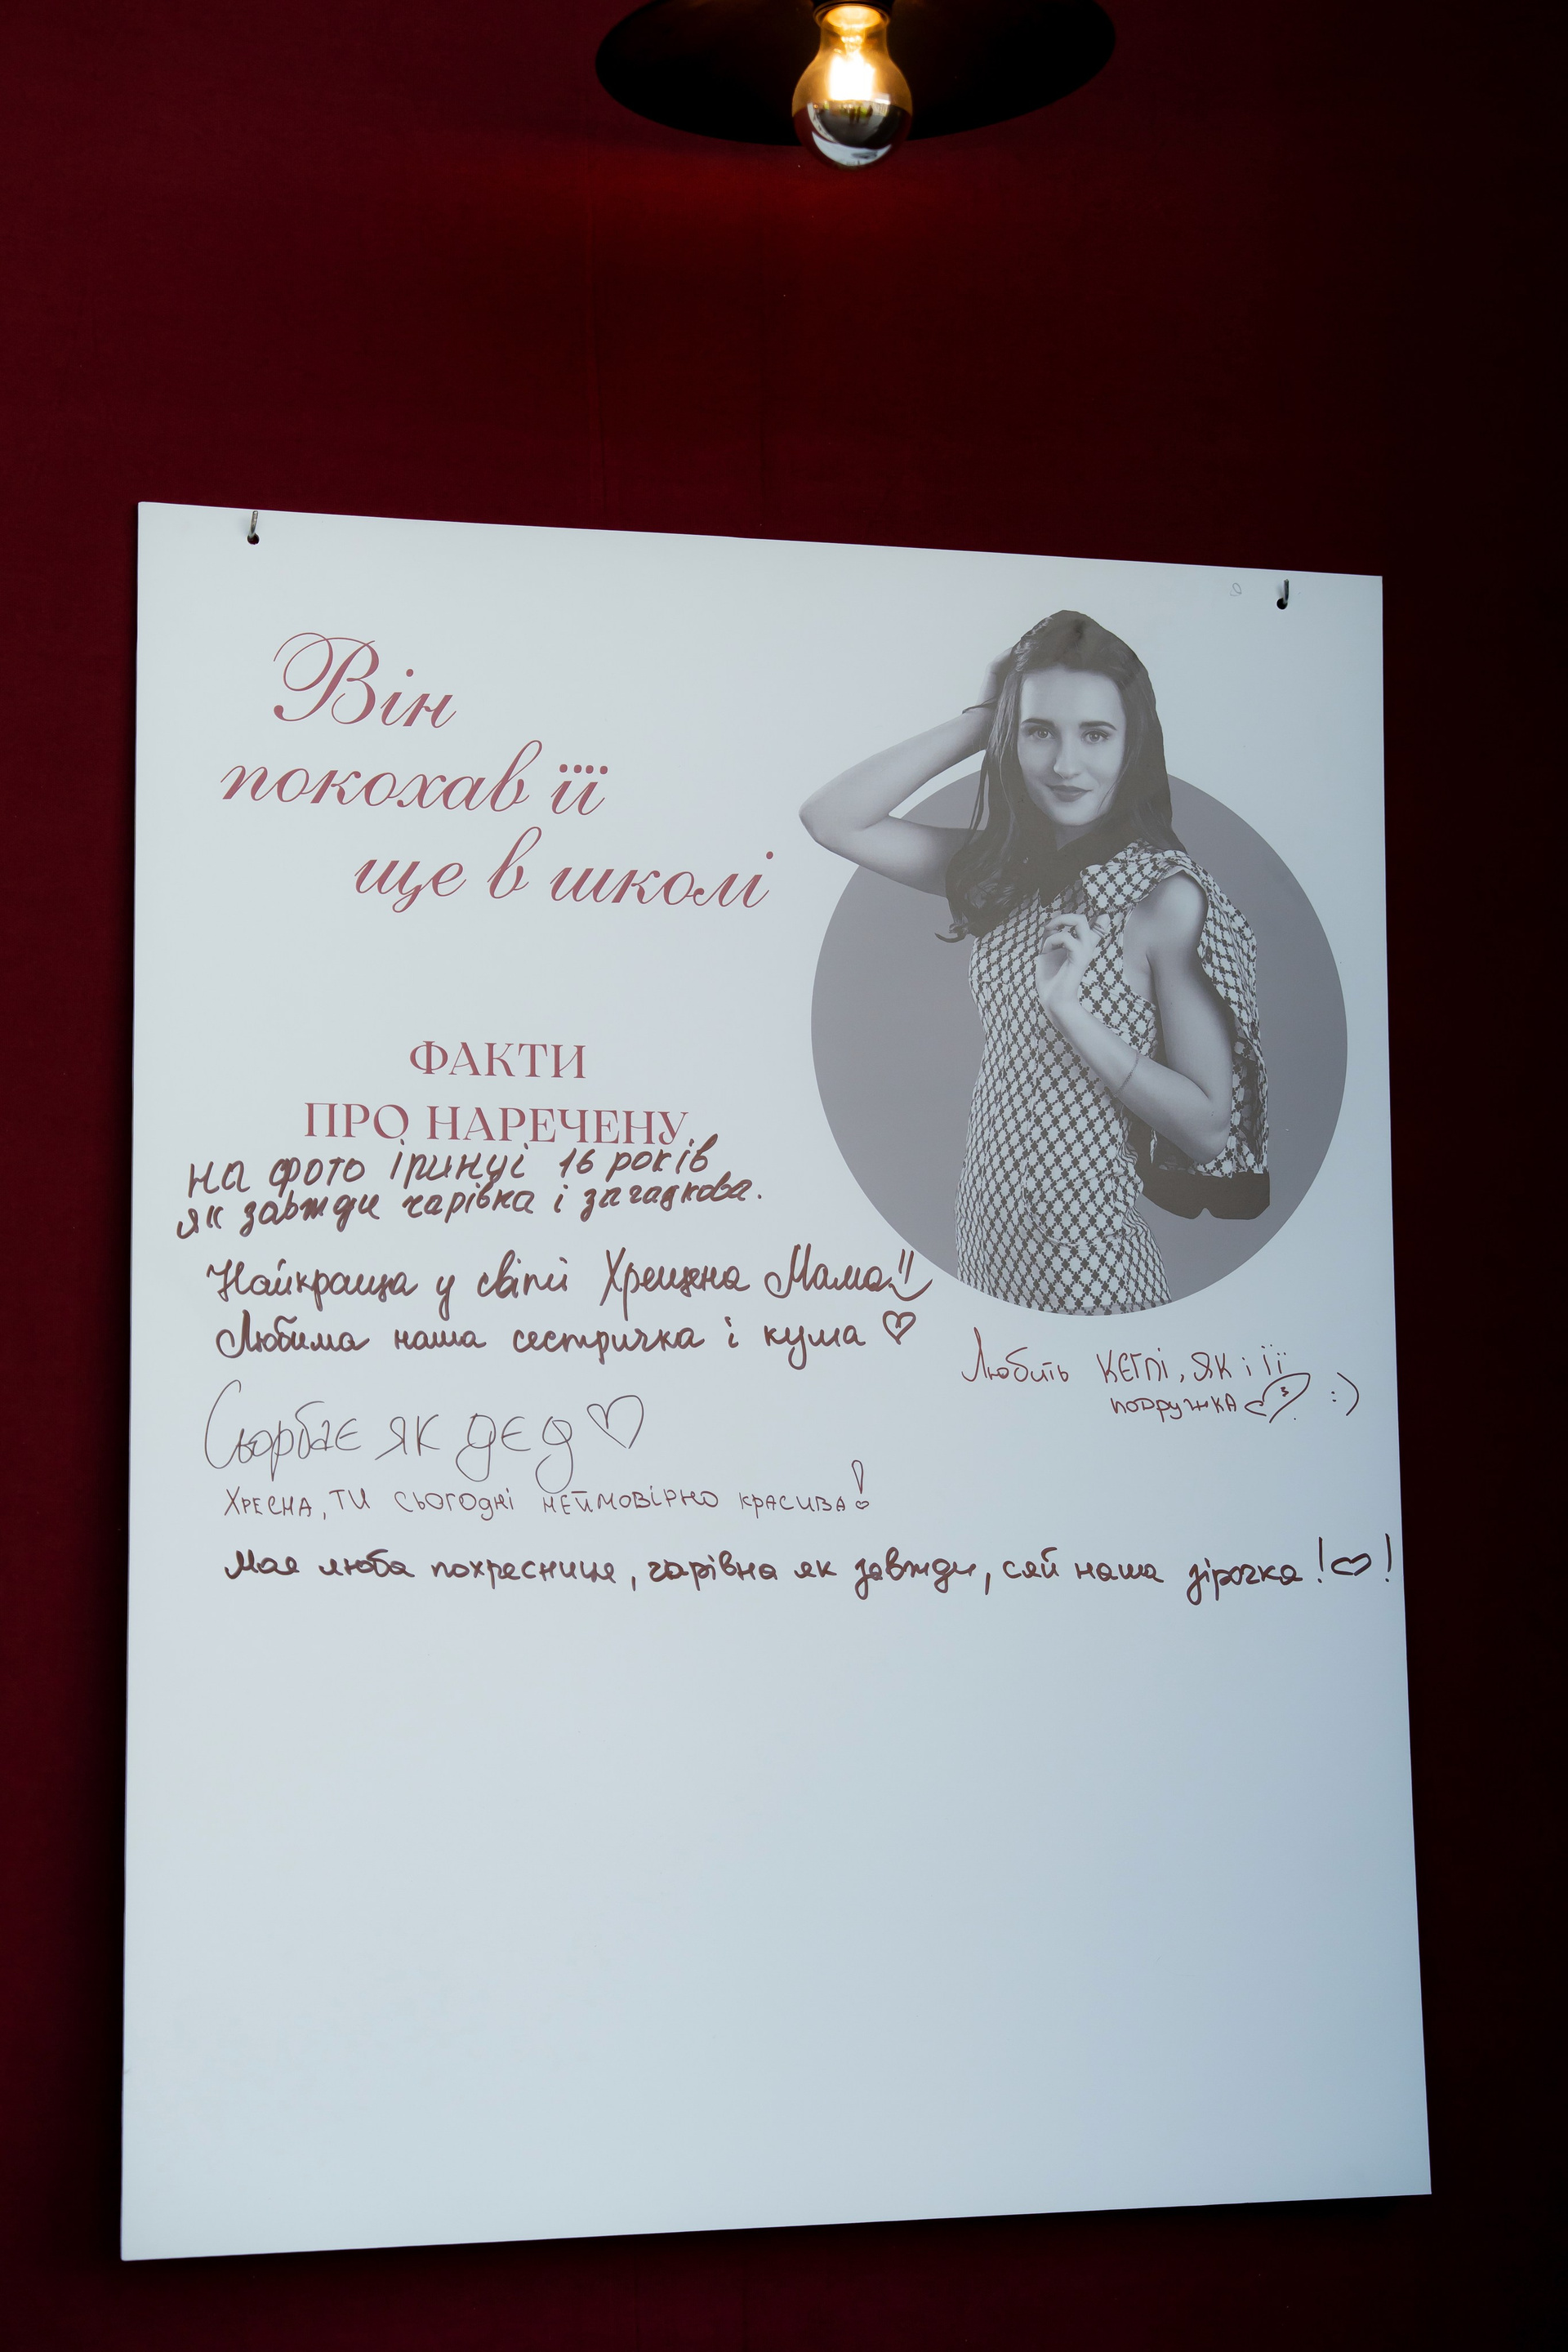 Він
покохав її
ще в школі
ФАКТИ
ПРО НАРЕЧЕНУ
На фото Іринці 16 років
як завжди чарівна і загадкова.
Найкраща у світі Хрещена Мама!!
Любима наша сестричка і кума ♡
Любить кєглі, як і її
подружка ♡ :)
Сьорбає як дєд ♡
Хресна, ти сьогодні неймовірно красива!
Моя люба похресниця, чарівна як завжди, сяй наша зірочка!♡!